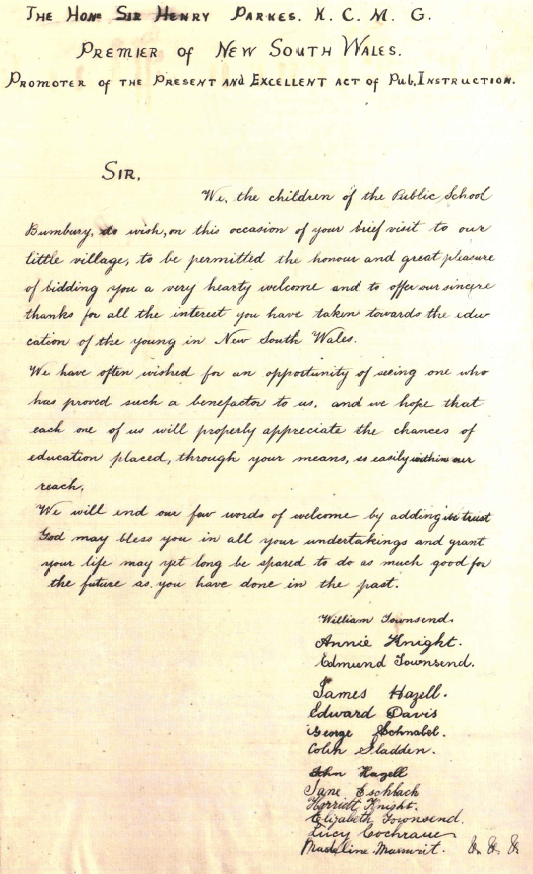 THE HONE SIR HENRY PARKES. K. C. M. G.
PREMIER OF NEW SOUTH WALES.
PROMOTER OF THE PRESENT AND EXCELLENT ACT OF PUB. INSTRUCTION.
SIR,
We, the children of the Public School
Bumbury, do wish, on this occasion of your brief visit to our
little village, to be permitted the honour and great pleasure
of bidding you a very hearty welcome and to offer our sincere
thanks for all the interest you have taken towards the edu
cation of the young in New South Wales.
We have often wished for an opportunity of seeing one who
has proved such a benefactor to us, and we hope that
each one of us will properly appreciate the chances of
education placed, through your means, so easily within our
reach.
We will end our few words of welcome by adding we trust
God may bless you in all your undertakings and grant
your life may yet long be spared to do as much good for
the future as you have done in the past.
William Townsend.
Annie Knight.
Edmund Townsend.
James Hazell.
Edward Davis
George Schnabel.
Colin Sladden.
John Hazell
Jane Eschbach
Harriett Knight.
Elizabeth Townsend.
Lucy Cochrane
Madeline &. &. &.